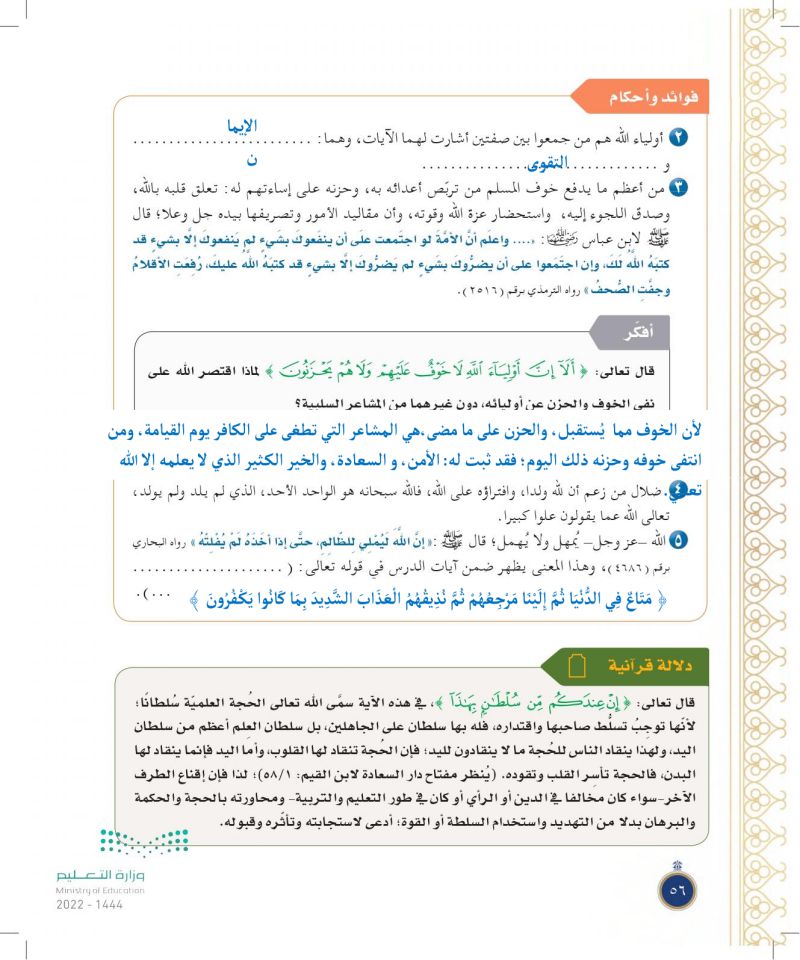 فوائد وأحكام
٢ أولياء الله هم من جمعوا بين صفتين أشارت لهما الآيات، وهما: الإيما
ن
و التقوى
٣ من أعظم ما يدفع خوف المسلم من تربّص أعدائه به، وحزنه على إساءتهم له: تعلق قلبه بالله،
وصدق اللجوء إليه، واستحضار عزة الله وقوته، وأن مقاليد الأمور وتصريفها بيده جل وعلا؛ قال
ﷺ لابن عباس رضي الله عنهما: «.... واعلم أنَّ الأمَّةَ لو اجتمعت على أن ينفَعوكَ بشيءٍ لم يَنفعوكَ إلَّا بشيءٍ قد
كتبَهُ اللَّهُ لَكَ، وإن اجتَمَعوا على أن يضرُّوكَ بشيءٍ لم يَضرُّوكَ إلَّا بشيءٍ قد كتبَهُ اللَّهُ عليكَ، رُفِعَتِ الأقلامُ
وجفَّتِ الصُّحفُ» رواه الترمذي برقم (٢٥١٦).
أفكّر
قال تعالى: ﴿ أَلَآ إِنَّ أَوْلِيَآءَ ٱللَّهِ لَا خَوْفٌ عَلَيْهِمْ وَلَا هُمْ يَحْزَنُونَ ﴾ لماذا اقتصر الله على
نفي الخوف والحزن عن أوليائه، دون غيرهما من المشاعر السلبية؟
لأن الخوف مما يُستقبل، والحزن على ما مضى،هي المشاعر التي تطغى على الكافر يوم القيامة، ومن
انتفى خوفه وحزنه ذلك اليوم؛ فقد ثبت له: الأمن، و السعادة، والخير الكثير الذي لا يعلمه إلا الله
تعالى.
٤ ضلال من زعم أن لله ولدا، وافتراؤه على الله، فالله سبحانه هو الواحد الأحد، الذي لم يلد ولم يولد،
تعالى الله عما يقولون علوا كبيرا.
٥ الله –عز وجل– يُمهل ولا يُهمل؛ قال ﷺ: «إنَّ اللَّهَ لَيُمْلِي للظّالِمِ، حتَّى إذا أخَذَهُ لَمْ يُفْلِتْهُ» رواه البخاري
برقم (٤٦٨٦)، وهذا المعنى يظهر ضمن آيات الدرس في قوله تعالى: (......................
﴿ مَتَاعٌ فِي الدُّنْيَا ثُمَّ إِلَيْنَا مَرْجِعُهُمْ ثُمَّ نُذِيقُهُمُ الْعَذَابَ الشَّدِيدَ بِمَا كَانُوا يَكْفُرُونَ ﴾ ...).
دلالة قرآنية
قال تعالى: ﴿ إِنْ عِندَكُم مِّن سُلْطَٰنٍۭ بِهَٰذَآ ﴾، في هذه الآية سمَّى الله تعالى الحُجة العلميّة سُلطانًا؛
لأنها توجبُ تسلُّط صاحبها واقتداره، فله بها سلطان على الجاهلين، بل سلطان العِلم أعظم من سلطان
اليد، ولهذا ينقاد الناس للحُجة ما لا ينقادون لليد؛ فإن الحُجة تنقاد لها القلوب، وأما اليد فإنما ينقاد لها
البدن، فالحجة تأسِر القلب وتقوده. (يُنظر مفتاح دار السعادة لابن القيم: ٥٨/١)؛ لذا فإن إقناع الطرف
الآخر–سواء كان مخالفا في الدين أو الرأي أو كان في طور التعليم والتربية– ومحاورته بالحجة والحكمة
والبرهان بدلا من التهديد واستخدام السلطة أو القوة؛ أدعى لاستجابته وتأثّره وقبوله.
وزارة التعليم
Ministry of Education
2022 - 1444
٥٦